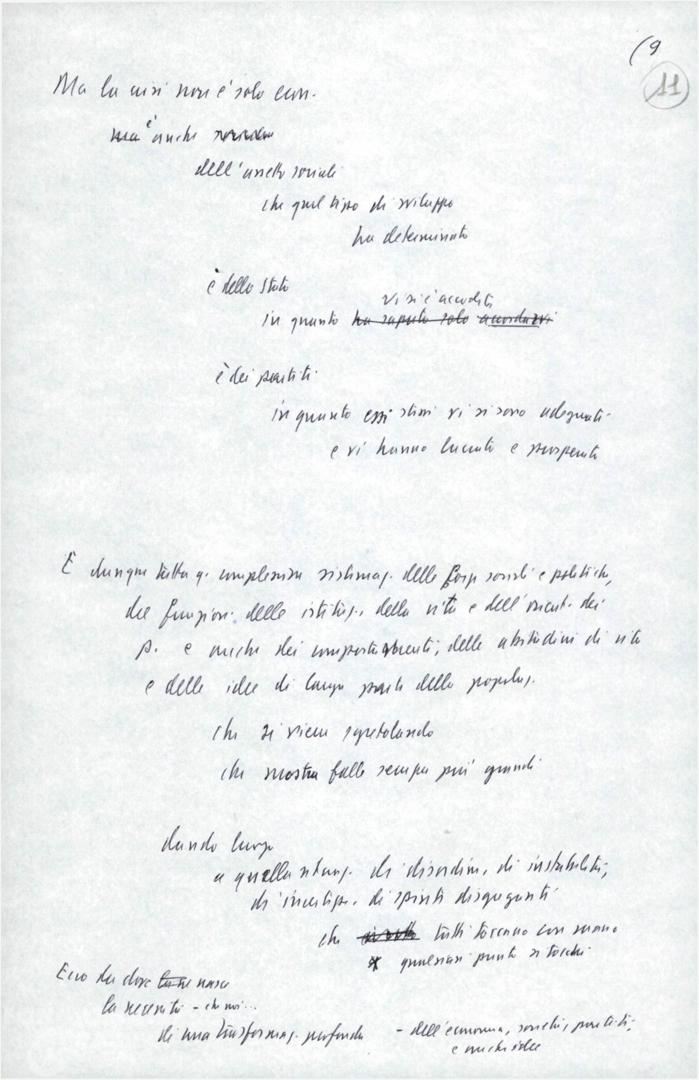 (9
11
Ma la crisi non è solo econ.
ma è anche
dell'assetto sociale
che quel tipo di sviluppo
ha determinato
è dello Stato
vi si è accodato
in quanto ha saputo solo accodarvi
è dei partiti
in quanto essi stessi vi si sono adeguati
e vi hanno lucrato e prosperato
È dunque tutta q. complessiva sistemaz. delle forze sociali e politiche,
del funzion. delle istituz. della vita e dell'orient. dei
p. e anche dei comportamenti, delle abitudini di vita
e delle idee di larga parte della popolaz.
che si viene sgretolando
che mostra falle sempre più grandi
dando luogo
a quella situaz. di disordine, di instabilità,
di incertezze, di spinte disgreganti
che tutti toccano con mano
qualsiasi punto si tocchi
Ecco da dove nasce
la necessità - che noi...
di una trasformaz. profonda - dell'economia, società, partiti,
e anche idee